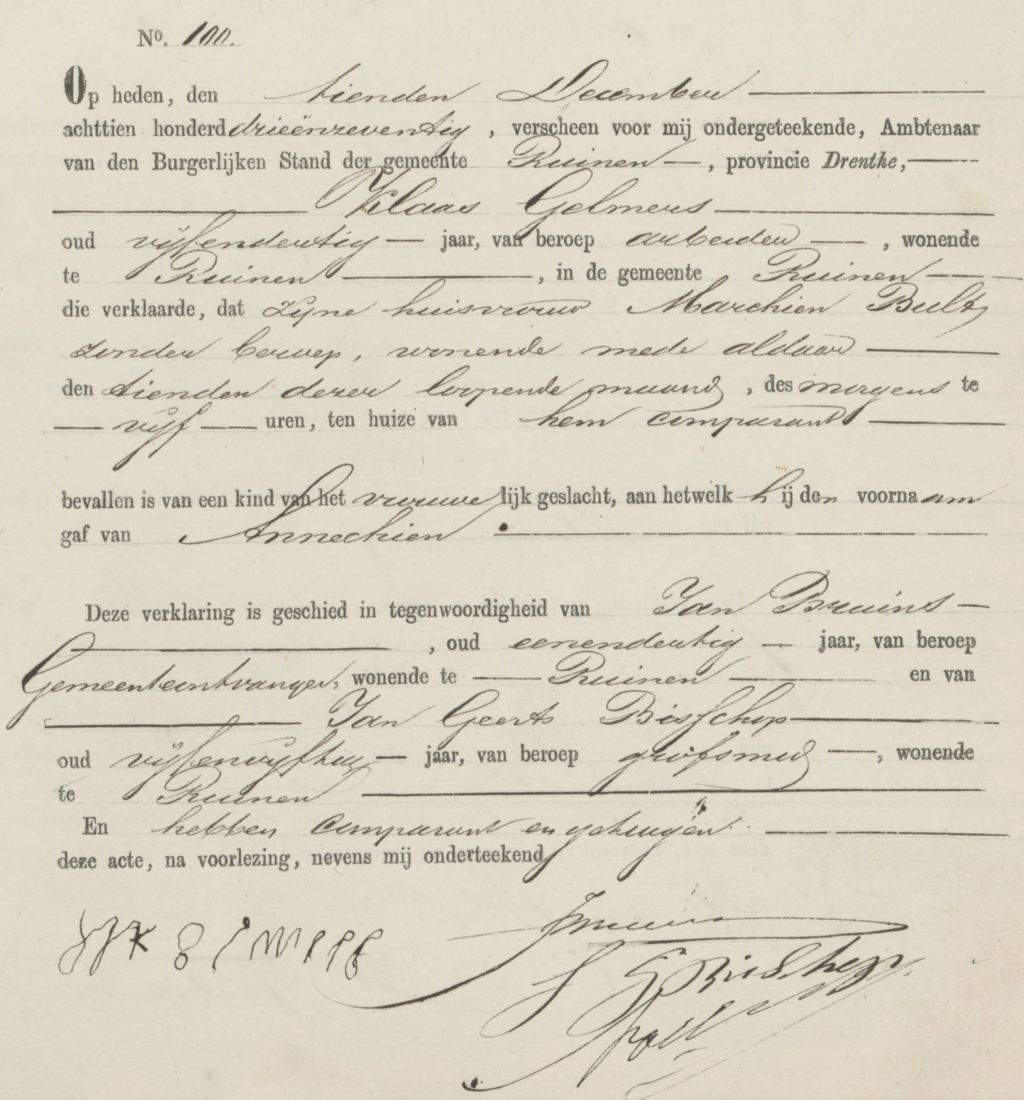 No. 100.
Op heden, den tienden December
achttien honderd drieënzeventig, verscheen voor mij ondergeteekende, Ambtenaar
van den Burgerlijken Stand der gemeente Ruinen, provincie Drenthe,
Klaas Gelmers
oud vijfendertig jaar, van beroep arbeider, wonende
te Ruinen, in de gemeente Ruinen
die verklaarde, dat zijne huisvrouw Marchien Bult,
zonder beroep, wonende mede aldaar
den tienden dezer loopende maand, des morgens te
vijf uren, ten huize van hem comparant
bevallen is van een kind van het vrouwelijk geslacht, aan hetwelk hij den voornaam
gaf van Annechien.
Deze verklaring is geschied in tegenwoordigheid van Jan Bruins
, oud eenendertig jaar, van beroep
Gemeenteontvanger, wonende te Ruinen en van
Jan Geerts Bisschop
oud vijfenvijftig jaar, van beroep grofsmid, wonende
te Ruinen
En hebben comparant en getuigen
deze acte, na voorlezing, nevens mij onderteekend
JBruins
J G Bisschop